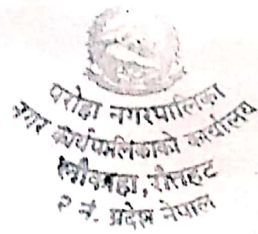 परोहा नगरपालिका
नगर कार्यपालिकाको कार्यालय
रौतहट
२ नं. प्रदेश नेपाल